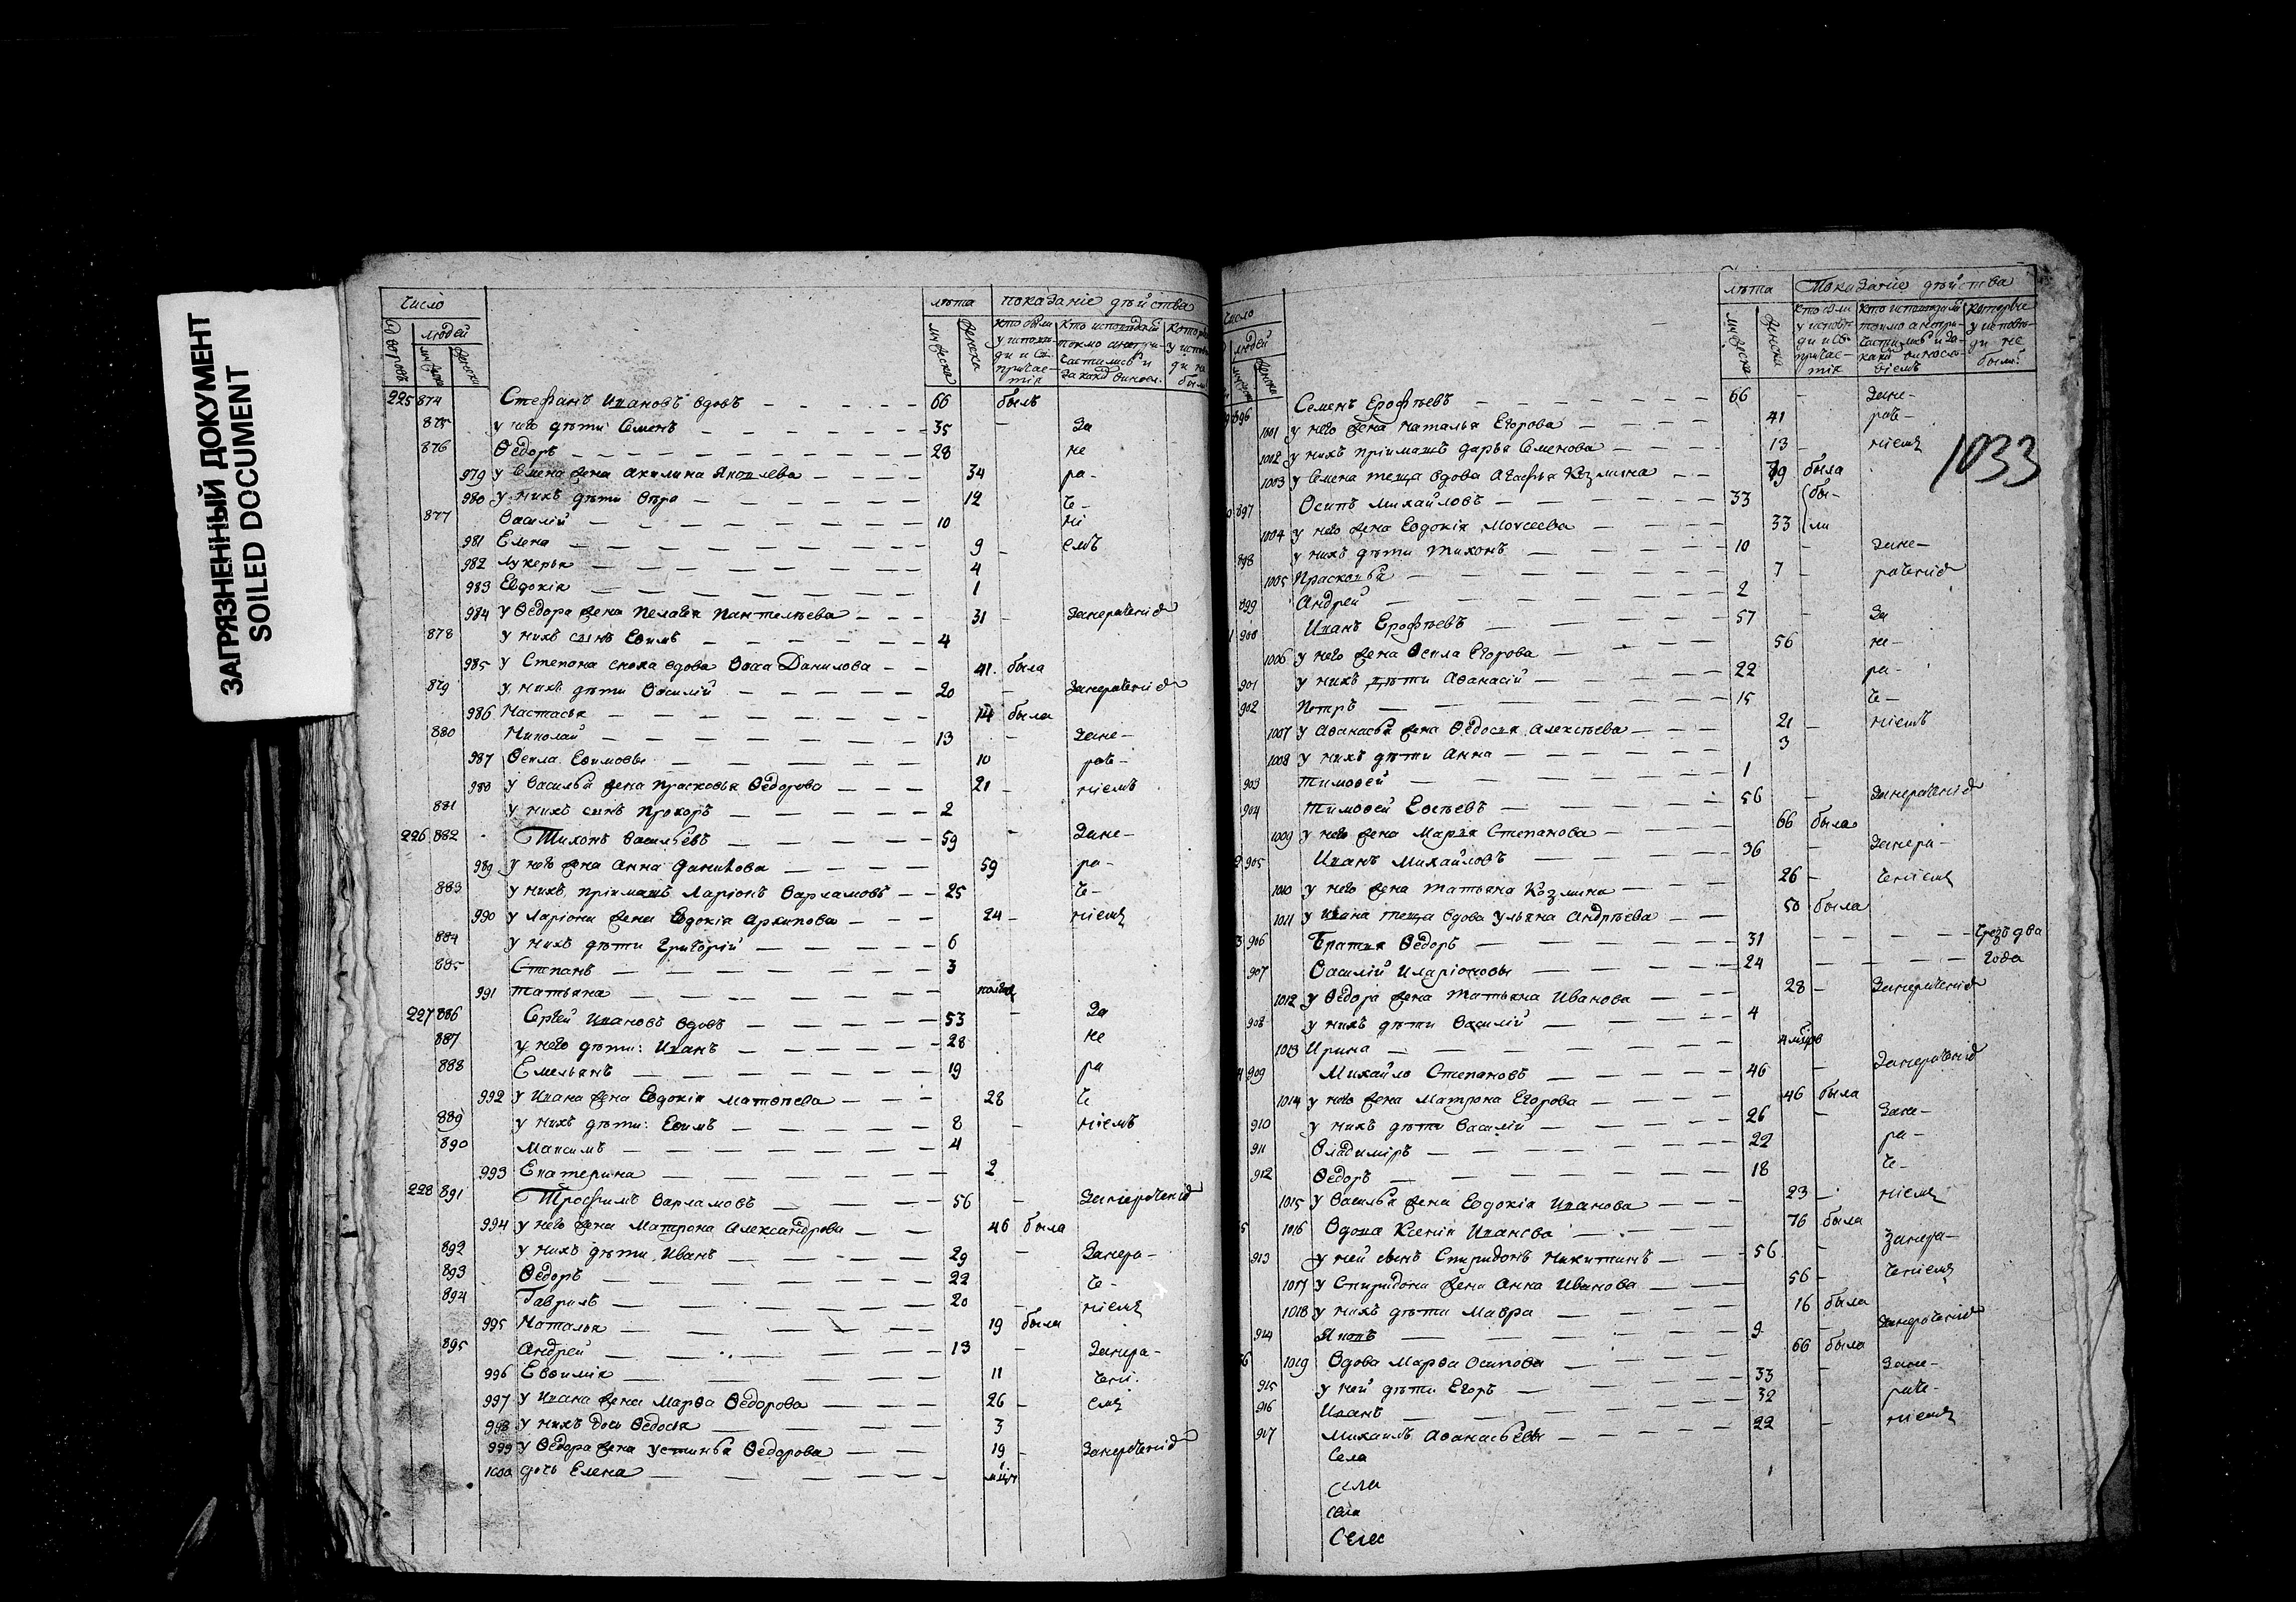 ЗАГРЯЗНЕННЫЙ ДОКУМЕНТ
SOILED DOCUMENT
число лѣта показаніе дѣйства
дворовъ людей мужеска женска кто были у исповѣди и св. причастія кто исповѣдался токмо а не причастились и за какъ винословіемъ
225 874 Стефанъ Ивановъ вдовъ 66 былъ
875 у него дѣти Семенъ 35 за
876 Ѳедоръ 28 не
979 у Семена жена Акилина Яковлева 34 ра-
980 у нихъ дѣти Вѣра 12 че-
877 Василій 10 ні
981 Елена 9 емъ
982 Лукерья 4
983 Евдокія 1
984 у Ѳедора жена Пелагея Пантелѣева 31 занераченіе
878 у нихъ сынъ Евимъ 4
985 у Степана сноха вдова Васа Данилова 41 была
879 у нихъ дѣти Василій 20 занераченіе
986 Настасья 14 была
880 Николай 13 зане-
987 Ѳекла Евимовы 10 раче-
988 у Василья жена Прасковья Ѳедорова 21 ніемъ
881 у нихъ сынъ Прохоръ 2
226 882 Тихонъ Васильевъ 59 зане-
989 у него жена Анна Данилова 59 ра-
883 у нихъ пріимашъ Ларіонъ Варламовъ 25 че-
990 у Ларіона жена Евдокія Архипова 24 ніемъ
884 у нихъ дѣти Григорій 6
885 Степанъ 3
991 Татьяна полгод
227 886 Сергей Ивановъ вдовъ 53 за
887 у него дѣти: Иванъ 28 не
888 Емельянъ 19 ра
992 у Ивана жена Евдокія Матвѣева 28 че
889 у нихъ дѣти: Евимъ 8 ніемъ
890 Максимъ 4
993 Екатерина 2
228 891 Трофимъ Варламовъ 56 занераченіе
994 у него жена Матрона Александрова 46 была
892 у нихъ дѣти Иванъ 29 занера-
893 Ѳедоръ 22 че-
894 Гаврилъ 20 ніемъ
995 Наталья 19 была
895 Андрей 13 занера-
996 Евѳимія 11 чені
997 у Ивана жена Марѳа Ѳедорова 26 емъ
998 у нихъ дочь Ѳедосья 3
999 у Ѳедора жена Устинья Ѳедорова 19 занераченіе
1000 дочь Елена мѣсяц
число лѣта Показаніе дѣйства
людей мужеска женска кто были у исповѣди и св. причастія кто исповѣдался токмо а не причастились и за какъ винословіемъ которые у исповѣди не были
1033
896 Семенъ Ерофѣевъ 66 зане-
1001 у него жена Наталья Егорова 41 раче-
1002 у нихъ пріимашъ Дарья Семенова 13 ніемъ
1003 у Семена теща вдова Агафья Козмина 79 была
897 Осипъ Михайловъ 33 бы-
1004 у него жена Евдокія Моисеева 33 ли
898 у нихъ дѣти Тихонъ 10 зане-
1005 Прасковья 7 раченіе
899 Андрей 2
900 Иванъ Ерофѣевъ 57 за
1006 у него жена Ѳекла Егорова 56 не-
901 у нихъ дѣти Аѳанасій 22 ра-
902 Петръ 15 че-
1007 у Аѳанасья жена Ѳедосья Алексѣева 21 ніемъ
1008 у нихъ дѣти Анна 3
903 Тимоѳей 1
904 Тимоѳей Евсѣевъ 56 занераченіе
1009 у него жена Марья Степанова 66 была
905 Иванъ Михайловъ 36 занера-
1010 у него жена Татьяна Козмина 26 ченіемъ
1011 у Ивана теща вдова Ульяна Андрѣева 50 была
906 Братья Ѳедоръ 31 чрезъ два
907 Василій Иларіоновы 24 года
1012 у Ѳедора жена Татьяна Иванова 28 занераченіе
908 у нихъ дѣти Василій 4
1013 Ирина 4 мѣсяцовъ
909 Михайло Степановъ 46 занераченіе
1014 у него жена Матрона Егорова 46 была
910 у нихъ дѣти Василій 26 зане-
911 Владиміръ 22 ра-
912 Ѳедоръ 18 че-
1015 у Василья жена Евдокія Иванова 23 ніемъ
1016 Вдова Ксенія Иванова 76 была
913 у ней сынъ Спиридонъ Никитинъ 56 занера-
1017 у Спиридона жена Анна Иванова 56 ченіемъ
1018 у нихъ дѣти Мавра 16 была
914 Яковъ 9 занераченіе
1019 Вдова Марѳа Осипова 66 была
915 у ней дѣти Егоръ 33 зане-
916 Иванъ 32 раче-
917 Михаилъ Аѳанасьевы 22 ніемъ
Села
села
села
Селес